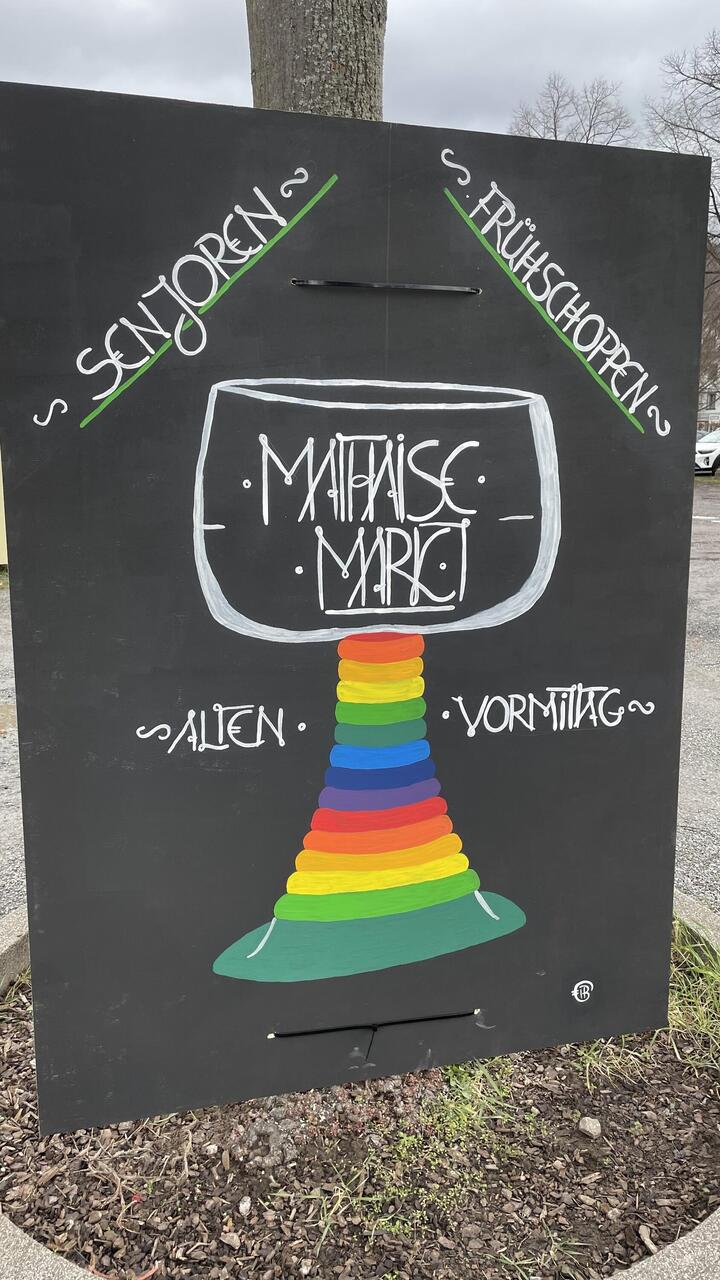 ~ SENJOREN ~
~ FRÜHSCHOPPEN ~
· MATHAISE ·
· MARKT
~ ALTEN ·
· VORMITTAG ~